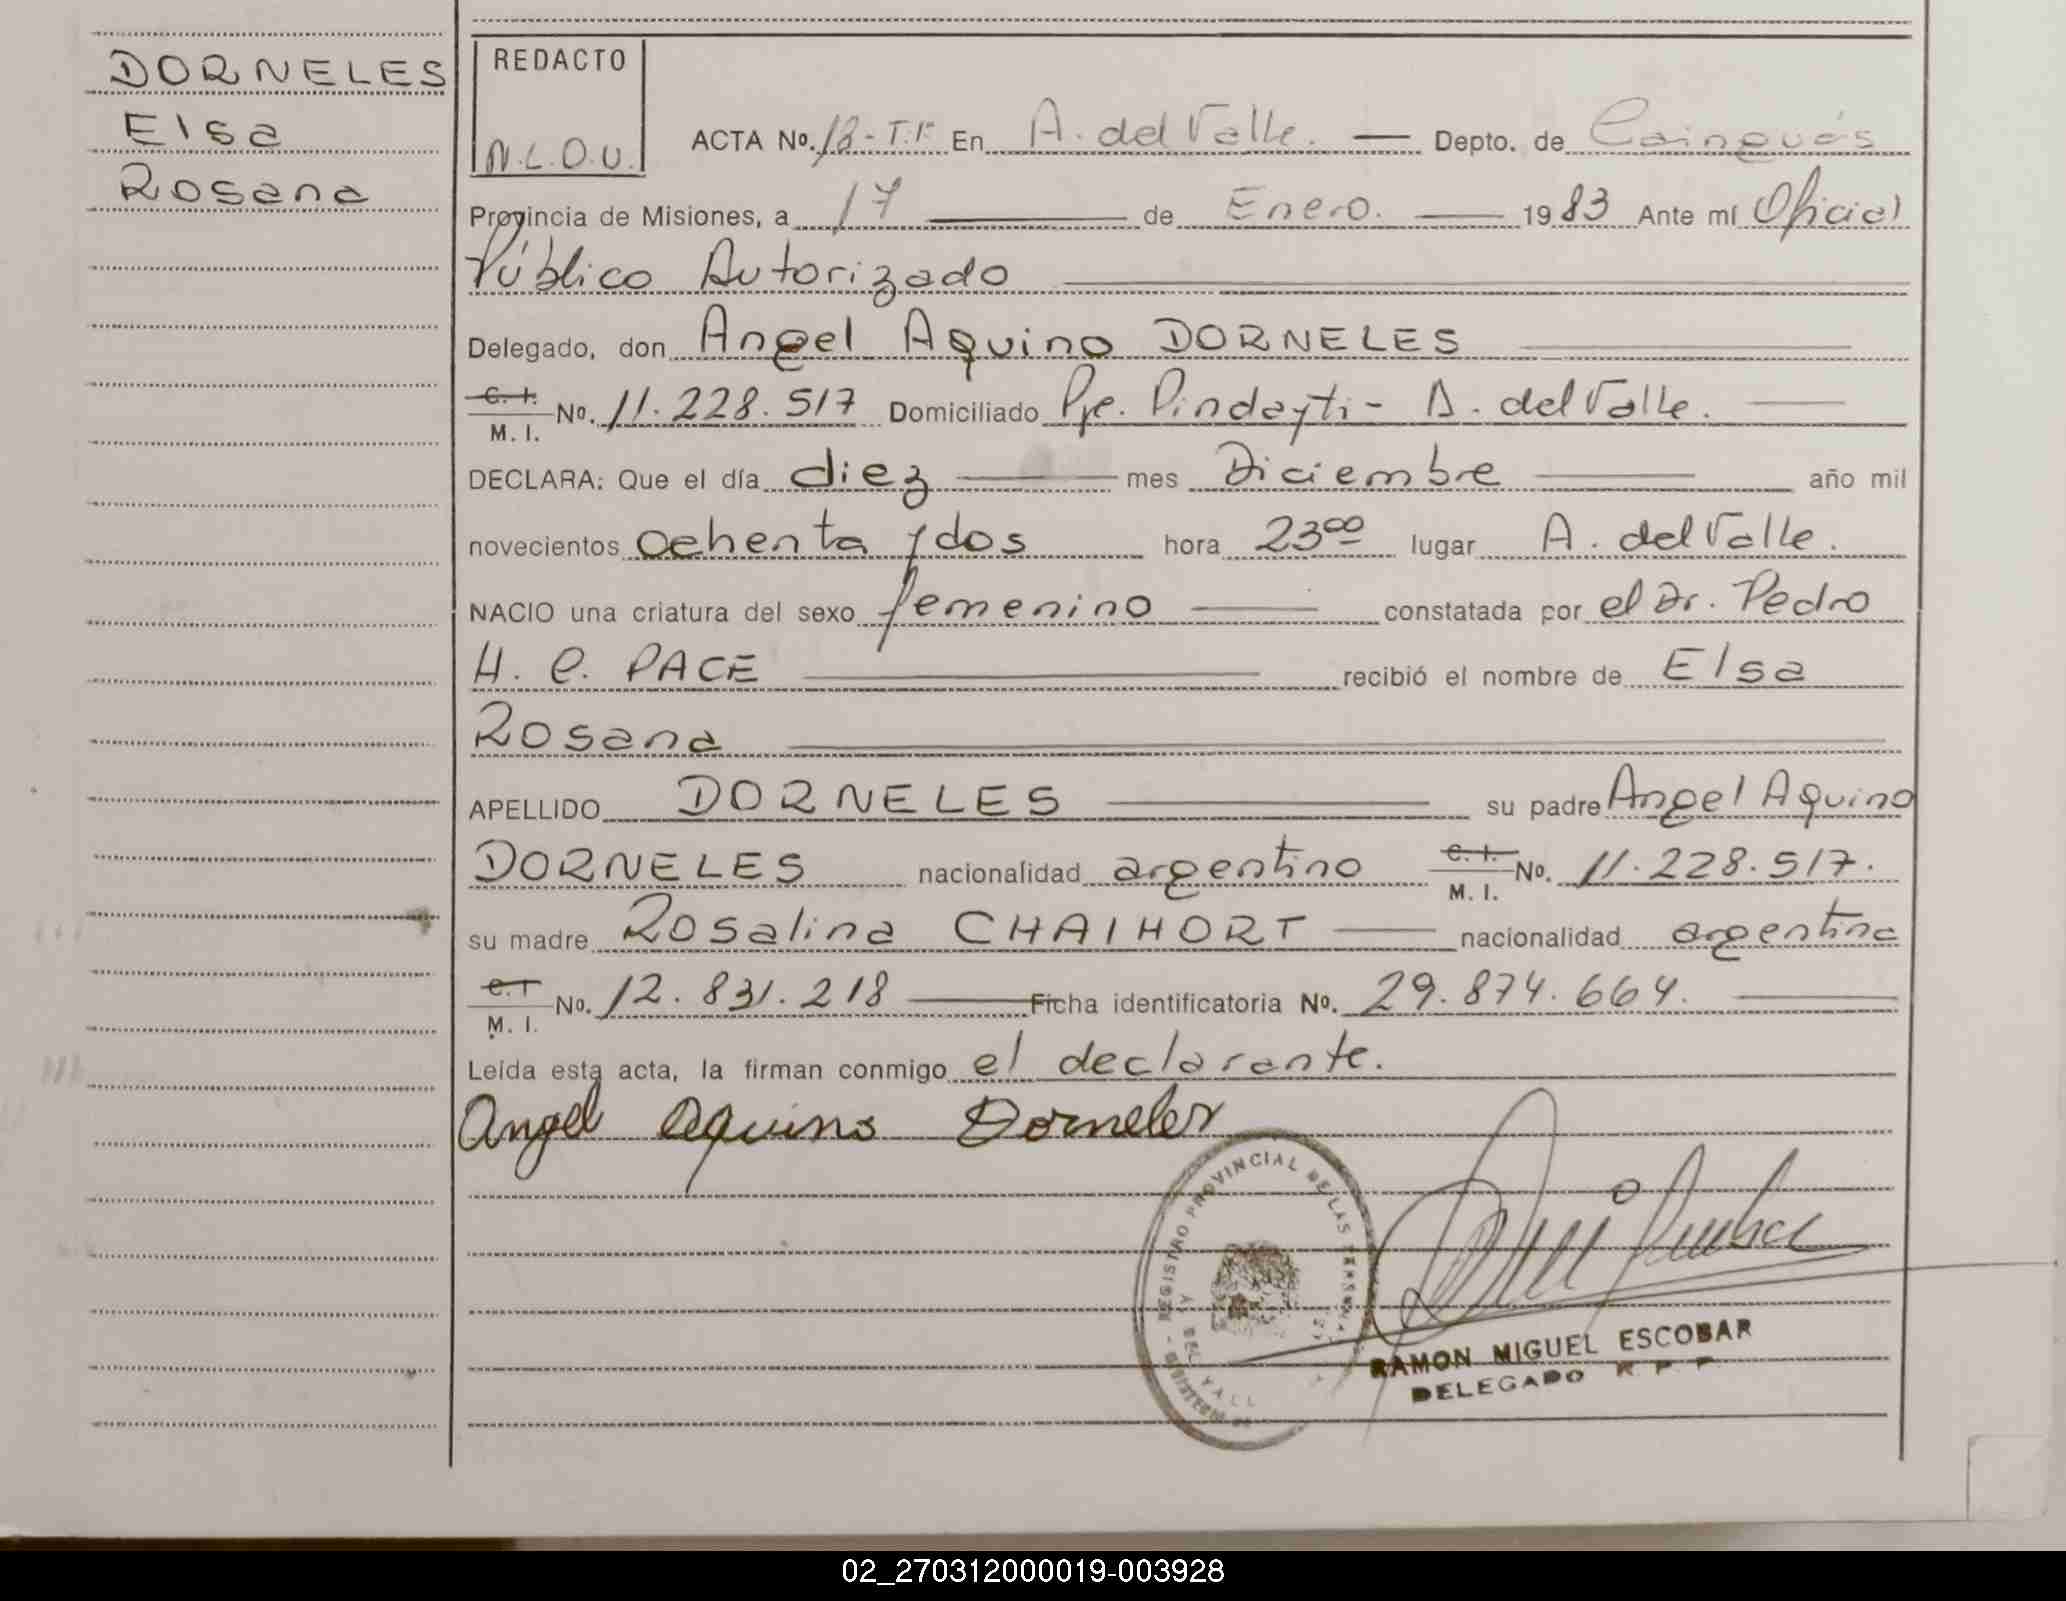 DORNELES
Elsa
Rosana
REDACTO
N.L.O.U.
ACTA No. 13-T.F. En A. del Valle. Depto. de Cainguás
Provincia de Misiones, a 17 de Enero. 1983 Ante mí Oficial
Público Autorizado
Delegado, don Angel Aquino DORNELES
C. I. M. I. No. 11.228.517 Domiciliado Pje. Pindayti- A. del Valle.
DECLARA: Que el día diez mes Diciembre año mil
novecientos ochenta y dos hora 23 00 lugar A. del Valle.
NACIO una criatura del sexo femenino constatada por el Dr. Pedro
H. C. PACE recibió el nombre de Elsa
Rosana
APELLIDO DORNELES su padre Angel Aquino
DORNELES nacionalidad argentino C. I. M. I. No. 11.228.517.
su madre Rosalina CHAIHORT nacionalidad argentina
C. I. M. I. No. 12.831.218 Ficha identificatoria No. 29.874.664.
Leída esta acta, la firman conmigo el declarante.
Angel Aquino Dorneles
REGISTRO PROVINCIAL DE LAS PERSONAS
RAMON MIGUEL ESCOBAR
DELEGADO R. P. P.
02_270312000019-003928